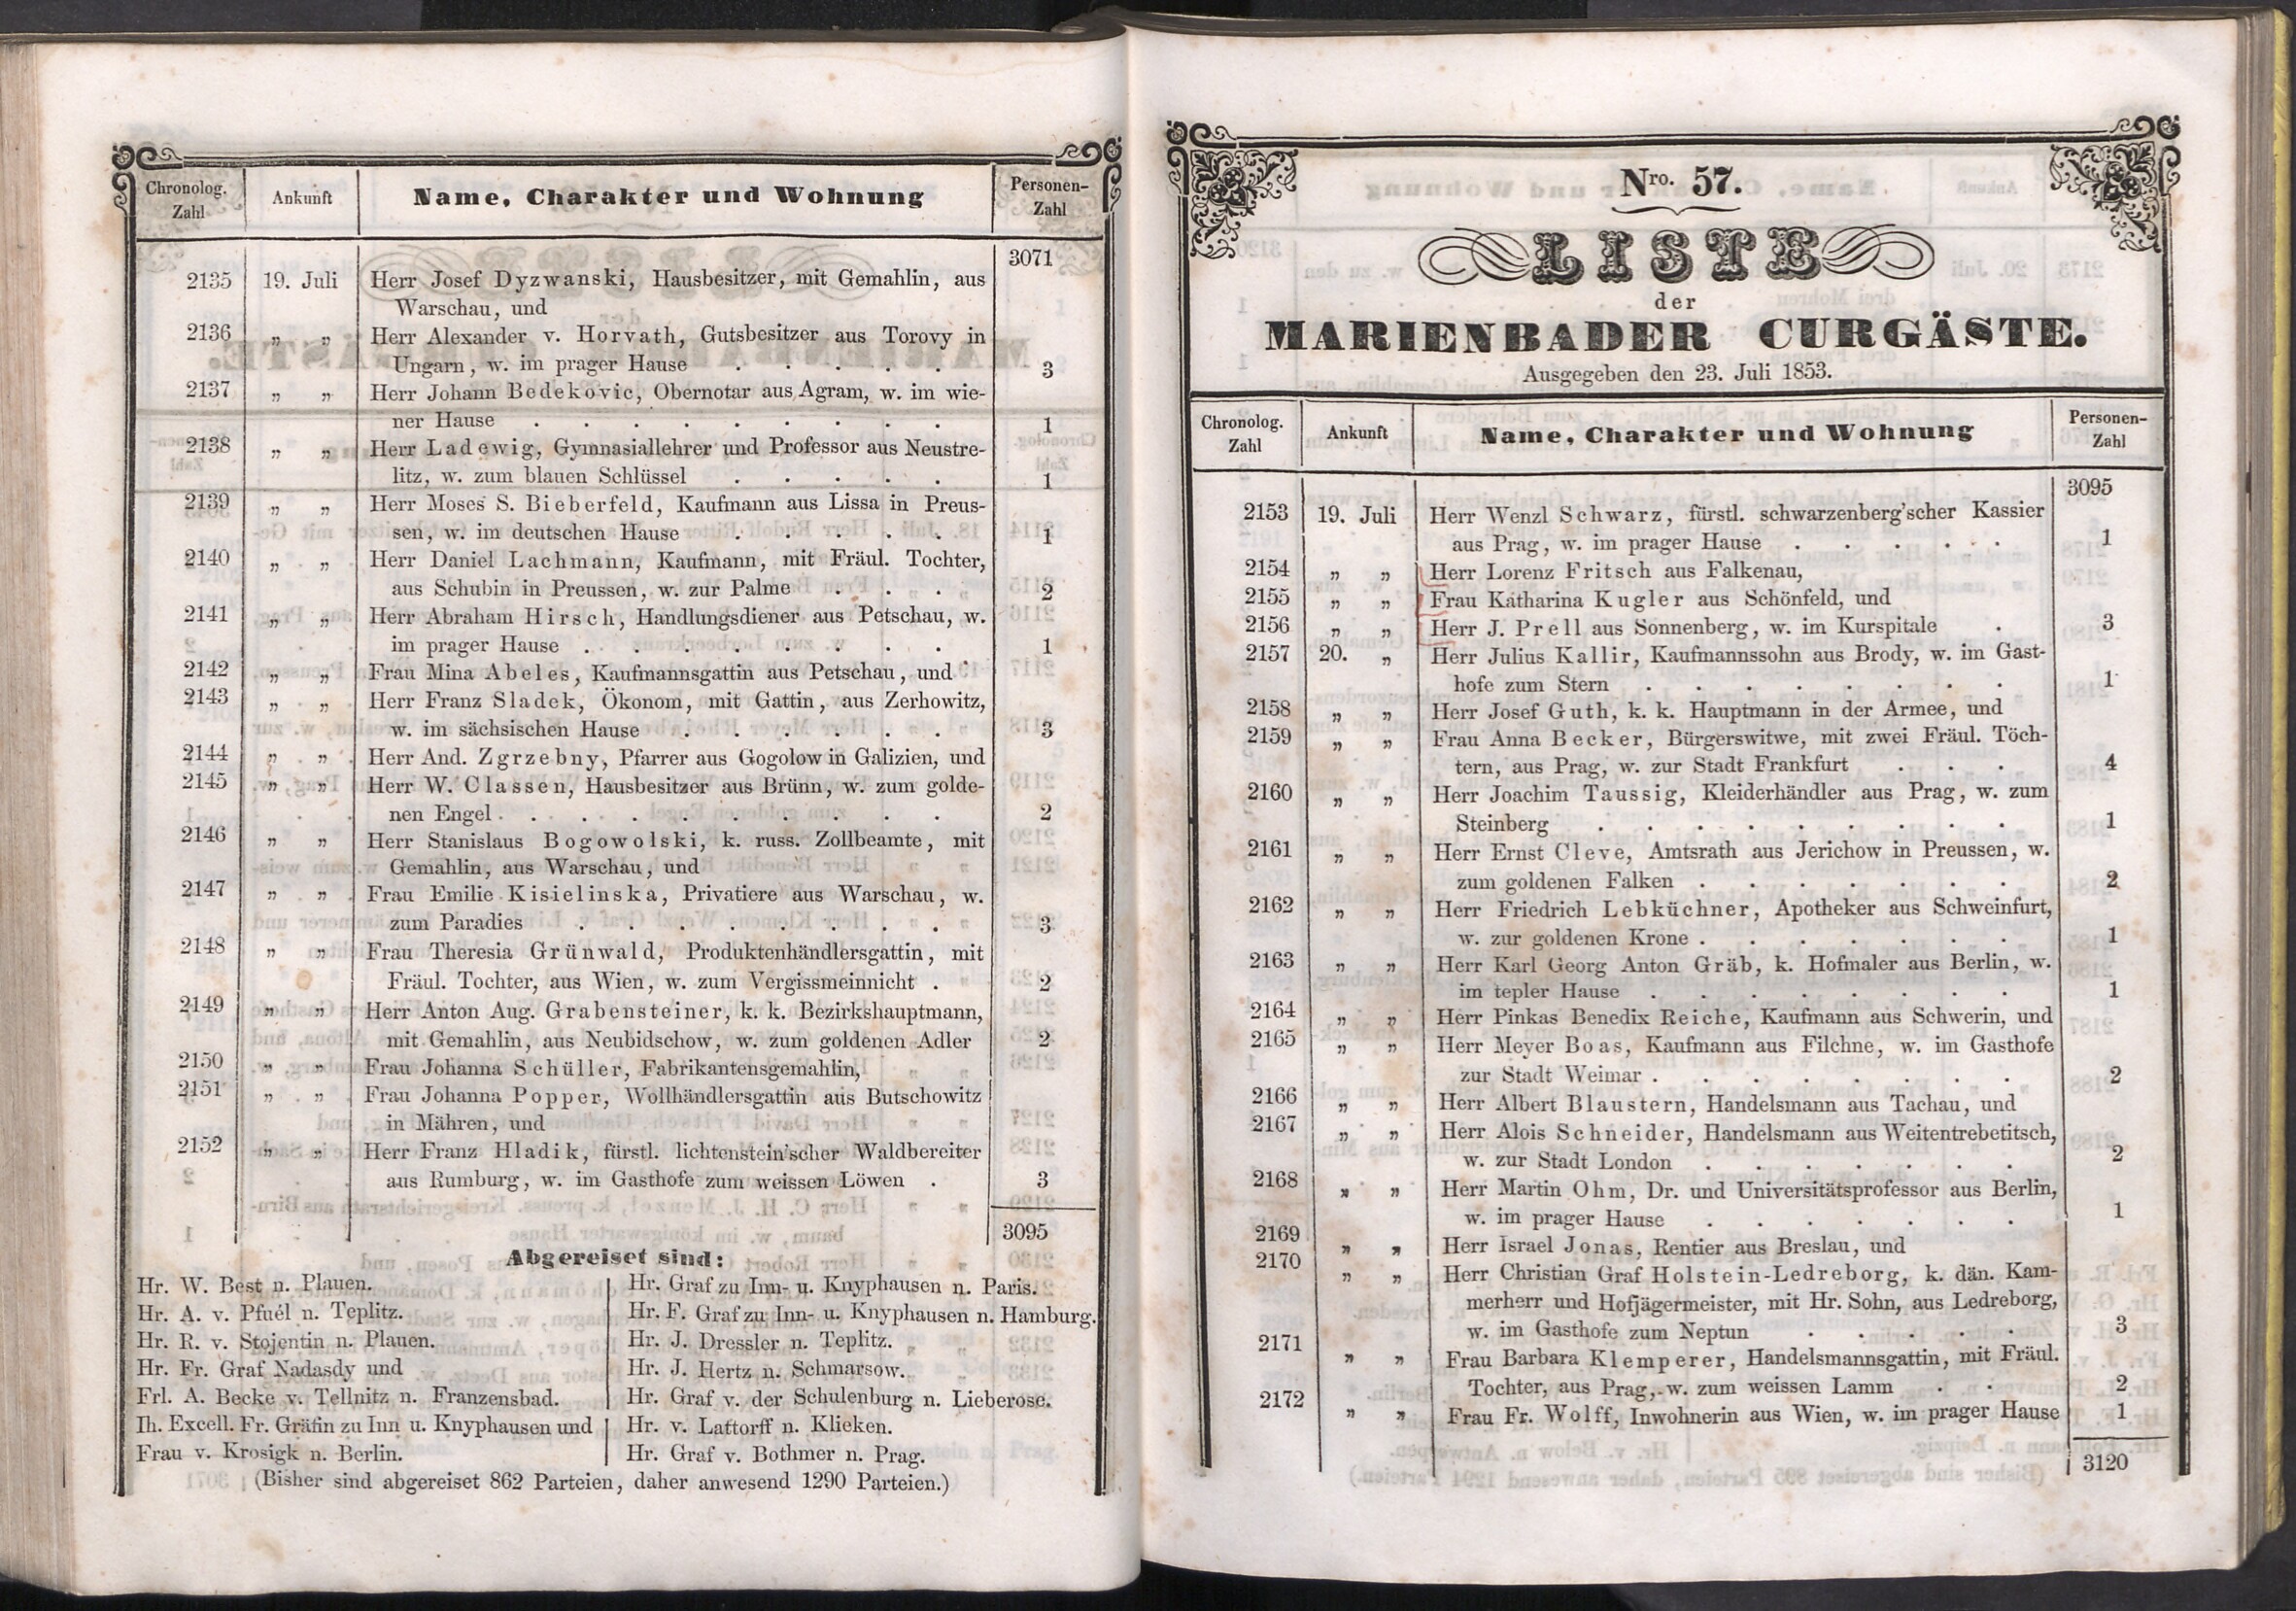 Chronolog. Zahl | Ankunft | Name, Charakter und Wohnung | Personen-Zahl
3071
2135 19. Juli Herr Josef Dyzwanski, Hausbesitzer, mit Gemahlin, aus
Warschau, und
2136 „ „ Herr Alexander v. Horvath, Gutsbesitzer aus Torovy in
Ungarn, w. im prager Hause . . . . . 3
2137 „ „ Herr Johann Bedekovic, Obernotar aus Agram, w. im wie-
ner Hause . . . . . . . . . 1
2138 „ „ Herr Ladewig, Gymnasiallehrer und Professor aus Neustre-
litz, w. zum blauen Schlüssel . . . . . 1
2139 „ „ Herr Moses S. Bieberfeld, Kaufmann aus Lissa in Preus-
sen, w. im deutschen Hause . . . . . 1
2140 „ „ Herr Daniel Lachmann, Kaufmann, mit Fräul. Tochter,
aus Schubin in Preussen, w. zur Palme . . . 2
2141 „ „ Herr Abraham Hirsch, Handlungsdiener aus Petschau, w.
im prager Hause . . . . . . . . 1
2142 „ „ Frau Mina Abeles, Kaufmannsgattin aus Petschau, und
2143 „ „ Herr Franz Sladek, Ökonom, mit Gattin, aus Zerhowitz,
w. im sächsischen Hause . . . . . . 3
2144 „ „ Herr And. Zgrzebny, Pfarrer aus Gogolow in Galizien, und
2145 „ „ Herr W. Classen, Hausbesitzer aus Brünn, w. zum golde-
nen Engel . . . . . . . . . 2
2146 „ „ Herr Stanislaus Bogowolski, k. russ. Zollbeamte, mit
Gemahlin, aus Warschau, und
2147 „ „ Frau Emilie Kisielinska, Privatiere aus Warschau, w.
zum Paradies . . . . . . . . 3
2148 „ „ Frau Theresia Grünwald, Produktenhändlersgattin, mit
Fräul. Tochter, aus Wien, w. zum Vergissmeinnicht . 2
2149 „ „ Herr Anton Aug. Grabensteiner, k. k. Bezirkshauptmann,
mit Gemahlin, aus Neubidschow, w. zum goldenen Adler 2
2150 „ „ Frau Johanna Schüller, Fabrikantensgemahlin,
2151 „ „ Frau Johanna Popper, Wollhändlersgattin aus Butschowitz
in Mähren, und
2152 „ „ Herr Franz Hladik, fürstl. lichtenstein'scher Waldbereiter
aus Rumburg, w. im Gasthofe zum weissen Löwen . 3
3095
Abgereiset sind:
Hr. W. Best n. Plauen.
Hr. A. v. Pfuél n. Teplitz.
Hr. R. v. Stojentin n. Plauen.
Hr. Fr. Graf Nadasdy und
Frl. A. Becke v. Tellnitz n. Franzensbad.
Ih. Excell. Fr. Gräfin zu Inn u. Knyphausen und
Frau v. Krosigk n. Berlin.
Hr. Graf zu Inn- u. Knyphausen n. Paris.
Hr. F. Graf zu Inn- u. Knyphausen n. Hamburg.
Hr. J. Dressler n. Teplitz.
Hr. J. Hertz n. Schmarsow.
Hr. Graf v. der Schulenburg n. Lieberose.
Hr. v. Lattorff n. Klieken.
Hr. Graf v. Bothmer n. Prag.
(Bisher sind abgereiset 862 Parteien, daher anwesend 1290 Parteien.)
Nro. 57.
LISTE
der
MARIENBADER CURGÄSTE.
Ausgegeben den 23. Juli 1853.
Chronolog. Zahl | Ankunft | Name, Charakter und Wohnung | Personen-Zahl
3095
2153 19. Juli Herr Wenzl Schwarz, fürstl. schwarzenberg'scher Kassier
aus Prag, w. im prager Hause . . . . . 1
2154 „ „ Herr Lorenz Fritsch aus Falkenau,
2155 „ „ Frau Katharina Kugler aus Schönfeld, und
2156 „ „ Herr J. Prell aus Sonnenberg, w. im Kurspitale . 3
2157 20. „ Herr Julius Kallir, Kaufmannssohn aus Brody, w. im Gast-
hofe zum Stern . . . . . . . . 1
2158 „ „ Herr Josef Guth, k. k. Hauptmann in der Armee, und
2159 „ „ Frau Anna Becker, Bürgerswitwe, mit zwei Fräul. Töch-
tern, aus Prag, w. zur Stadt Frankfurt . . . 4
2160 „ „ Herr Joachim Taussig, Kleiderhändler aus Prag, w. zum
Steinberg . . . . . . . . . 1
2161 „ „ Herr Ernst Cleve, Amtsrath aus Jerichow in Preussen, w.
zum goldenen Falken . . . . . . . 2
2162 „ „ Herr Friedrich Lebküchner, Apotheker aus Schweinfurt,
w. zur goldenen Krone . . . . . . . 1
2163 „ „ Herr Karl Georg Anton Gräb, k. Hofmaler aus Berlin, w.
im tepler Hause . . . . . . . . 1
2164 „ „ Herr Pinkas Benedix Reiche, Kaufmann aus Schwerin, und
2165 „ „ Herr Meyer Boas, Kaufmann aus Filehne, w. im Gasthofe
zur Stadt Weimar . . . . . . . . 2
2166 „ „ Herr Albert Blaustern, Handelsmann aus Tachau, und
2167 „ „ Herr Alois Schneider, Handelsmann aus Weitentrebetitsch,
w. zur Stadt London . . . . . . . 2
2168 „ „ Herr Martin Ohm, Dr. und Universitätsprofessor aus Berlin,
w. im prager Hause . . . . . . . 1
2169 „ „ Herr Israel Jonas, Rentier aus Breslau, und
2170 „ „ Herr Christian Graf Holstein-Ledreborg, k. dän. Kam-
merherr und Hofjägermeister, mit Hr. Sohn, aus Ledreborg,
w. im Gasthofe zum Neptun . . . . . 3
2171 „ „ Frau Barbara Klemperer, Handelsmannsgattin, mit Fräul.
Tochter, aus Prag, w. zum weissen Lamm . . 2
2172 „ „ Frau Fr. Wolff, Inwohnerin aus Wien, w. im prager Hause 1
3120